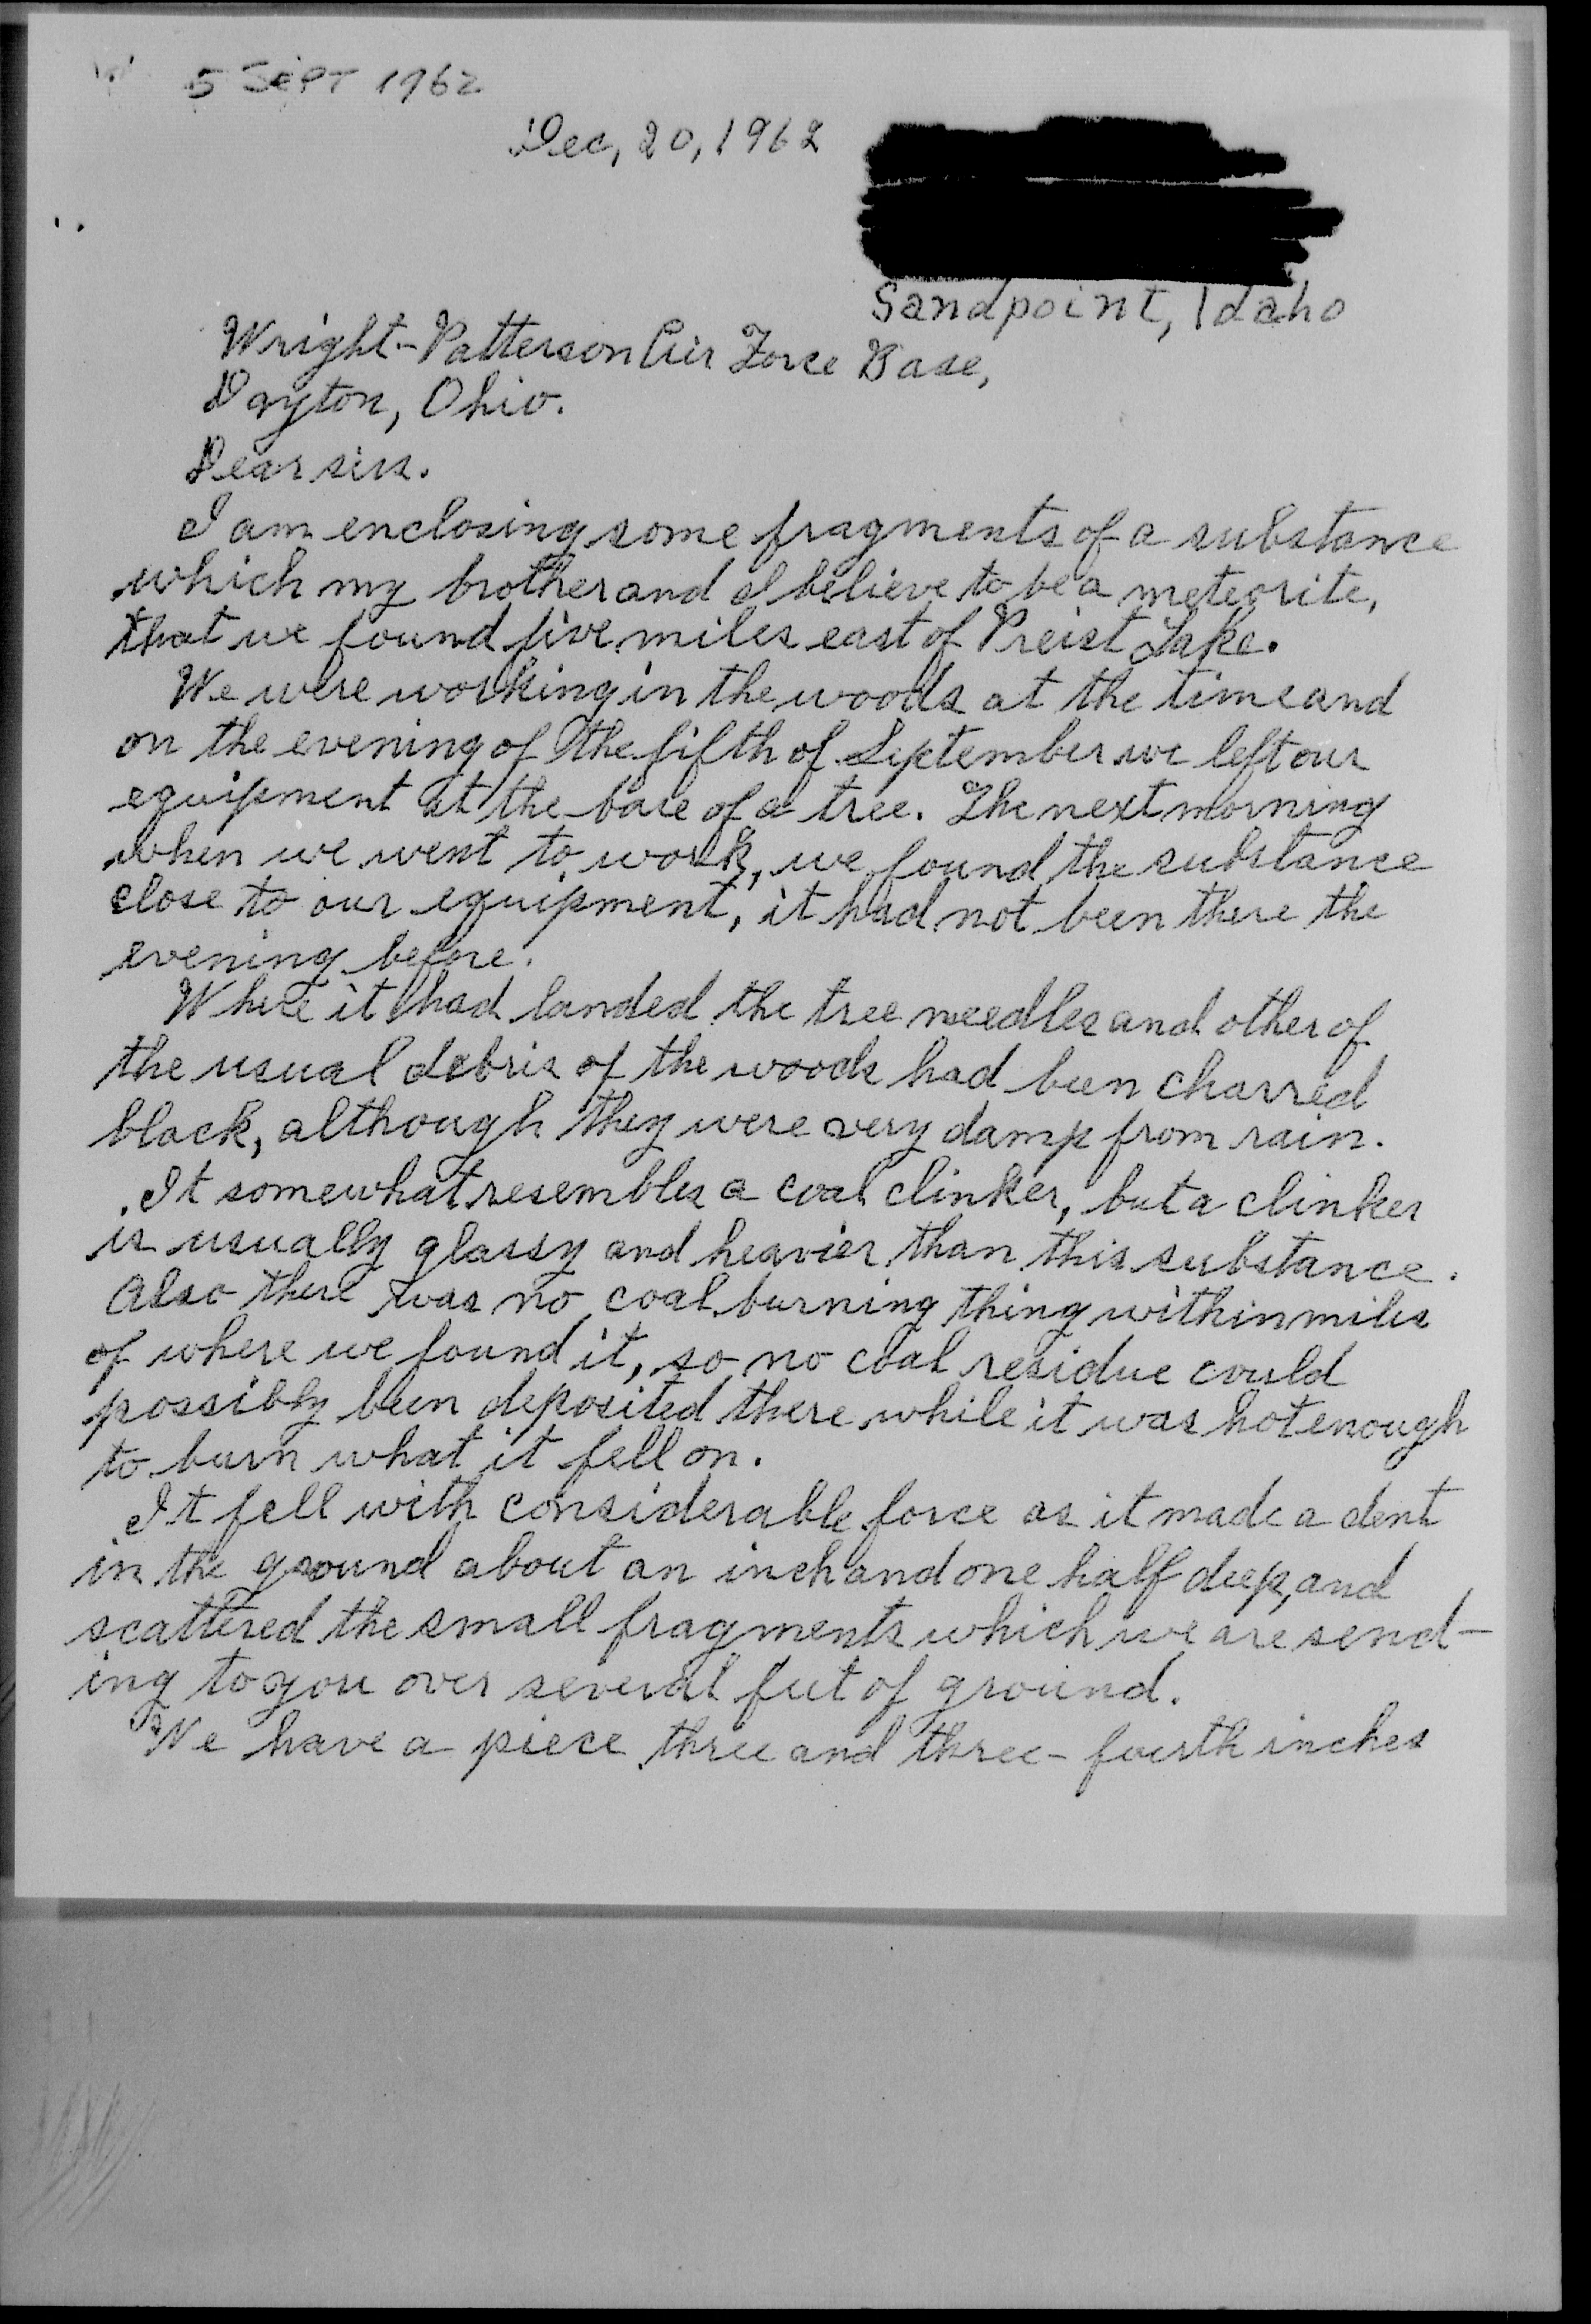 5 SEPT 1962
Dec, 20, 1962
Sandpoint, Idaho
Wright-Patterson Air Force Base,
Dayton, Ohio.
Dear sirs.
I am enclosing some fragments of a substance
which my brother and I believe to be a meteorite,
that we found five miles east of Preist Lake.
We were working in the woods at the time and
on the evening of the fifth of September we left our
equipment at the base of a tree. The next morning
when we went to work, we found the substance
close to our equipment, it had not been there the
evening before.
Where it had landed the tree needles and other of
the usual debris of the woods had been charred
black, although they were very damp from rain.
It somewhat resembles a coal clinker, but a clinker
is usually glassy and heavier than this substance.
Also there was no coal burning thing within miles
of where we found it, so no coal residue could
possibly been deposited there while it was hot enough
to burn what it fell on.
It fell with considerable force as it made a dent
in the ground about an inch and one half deep, and
scattered the small fragments which we are send-
ing to you over several feet of ground.
We have a piece three and three-fourth inches